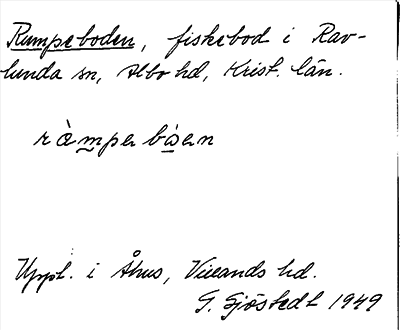 Rumpeboden, fiskebod i Rav-
lunda sn, Albo hd, Krist. län.
ràmper bàen
Uppt. i Åhus, Villands hd.
G. Sjöstedt 1949